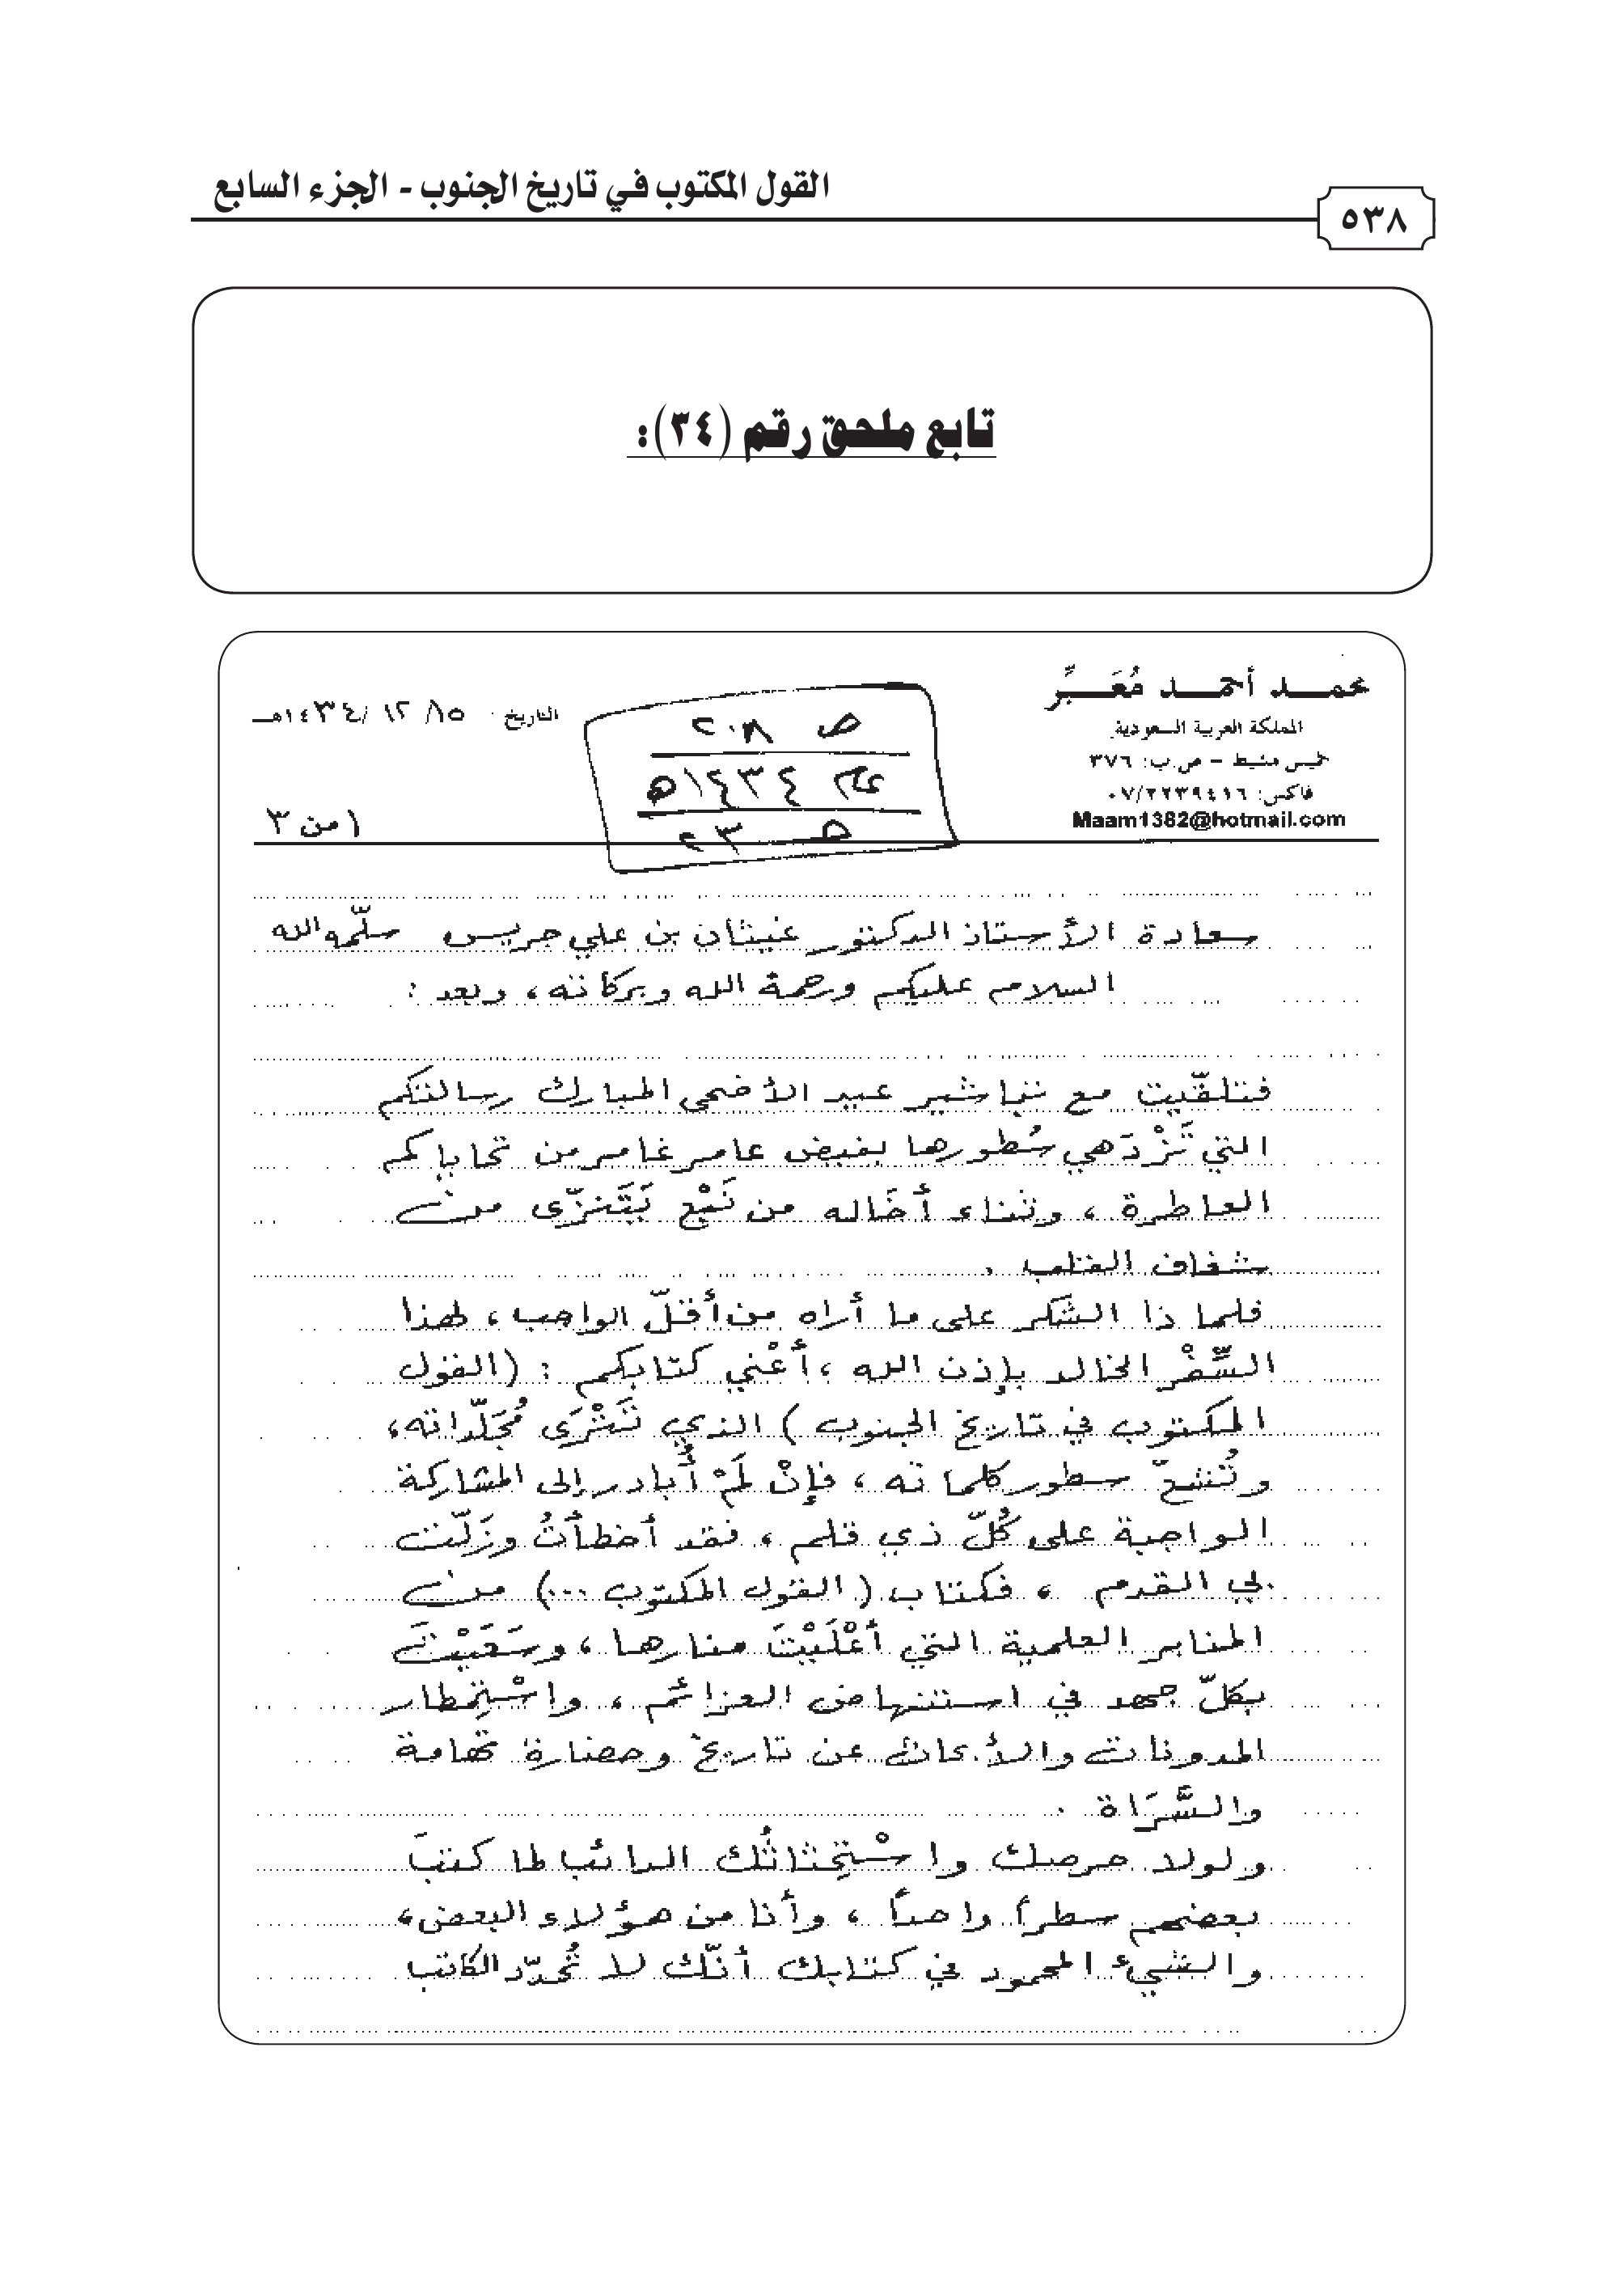 القول المكتوب في تاريخ الجنوب - الجزء السابع
٥٣٨
تابع ملحق رقم (٣٤):
محمد أحمد مُعَبِّر
المملكة العربية السعودية
خميس مشيط – ص.ب: ٣٧٦
فاكس: ٠٧/٢٢٣٩٤١٦
Maam1382@hotmail.com
ص ٢٠٨
عام ١٤٣٤هـ
ص ٢٣
التاريخ ١٥/ ١٢ /١٤٣٤هـ
١ من ٣
سعادة الأستاذ الدكتور غيثان بن علي جريس سلّمه الله
السلام عليكم ورحمة الله وبركاته، وبعد :
فتلقّيت مع تباشير عيد الأضحى المبارك رسالتكم
التي تَزْدَهي سُطورها بفيض عامر غامر من تحاياكم
العاطرة ، وثناء أخَاله من نَبْع يَتَنزّى من
شغاف القلب .
فلماذا الشكر على ما أراه من أقلّ الواجب، لهذا
السِّفْر الخالد بإذن الله ، أعْني كتابكم : (القول
المكتوب في تاريخ الجنوب ) الذي تَتْرَى مُجَلّداته،
وتُشحّ سطور كلماته ، فإنْ لَمْ أُبادر إلى المشاركة
الواجبة على كُلّ ذي قلم ، فقد أخطأتُ وزَلّت
بي القدم ، فكتاب ( القول المكتوب ...) من
المنابر العلمية التي أعْلَيْتَ منارها ، وسَعَيْتَ
بكلّ جهد في استنهاض العزائم ، واسْتِمطار
المدونات والأبحاث عن تاريخ وحضارة تهامة
والسَّرَاة .
ولولا حرصك واسْتِحثاثُك الدائب لما كتبَ
بعضهم سطراً واحداً ، وأنا من هؤلاء البعض،
والشيء المحمود في كتابك أنّك لا تُحدّد الكاتب